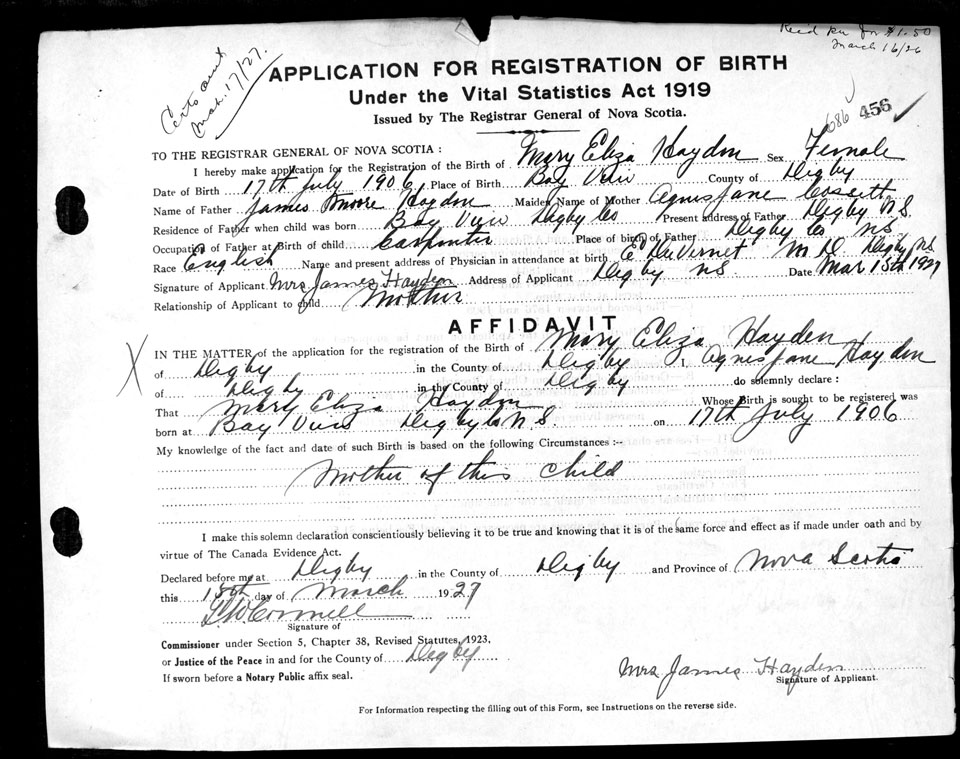 Rec'd $1.50
March 16/26
Mch. 17/27.
APPLICATION FOR REGISTRATION OF BIRTH
Under the Vital Statistics Act 1919
Issued by The Registrar General of Nova Scotia.
686 456
TO THE REGISTRAR GENERAL OF NOVA SCOTIA :
I hereby make application for the Registration of the Birth of Mary Eliza Haydon Sex Female
Date of Birth 17th July 1906 Place of Birth Bay View County of Digby
Name of Father James Moore Haydon Maiden Name of Mother Agnes Jane Cossett
Residence of Father when child was born Bay View Digby Co Present address of Father Digby N.S.
Occupation of Father at Birth of child Carpenter Place of birth of Father Digby Co N.S.
Race English Name and present address of Physician in attendance at birth E DuVernet M D Digby N.S.
Signature of Applicant Mrs James Hayden Address of Applicant Digby N S Date Mar 15th 1927
Relationship of Applicant to child Mother
AFFIDAVIT
IN THE MATTER of the application for the registration of the Birth of Mary Eliza Hayden
of Digby in the County of Digby I, Agnes Jane Haydon
of Digby in the County of Digby do solemnly declare :
That Mary Eliza Haydon Whose Birth is sought to be registered was
born at Bay View Digby Co N.S. on 17th July 1906
My knowledge of the fact and date of such Birth is based on the following Circumstances :--
Mother of this Child
I make this solemn declaration conscientiously believing it to be true and knowing that it is of the same force and effect as if made under oath and by
virtue of The Canada Evidence Act.
Declared before me at Digby in the County of Digby and Province of Nova Scotia
this 15th day of March 1927
Signature of
Commissioner under Section 5, Chapter 38, Revised Statutes, 1923,
or Justice of the Peace in and for the County of Digby
If sworn before a Notary Public affix seal.
Mrs James Hayden
Signature of Applicant.
For Information respecting the filling out of this Form, see Instructions on the reverse side.